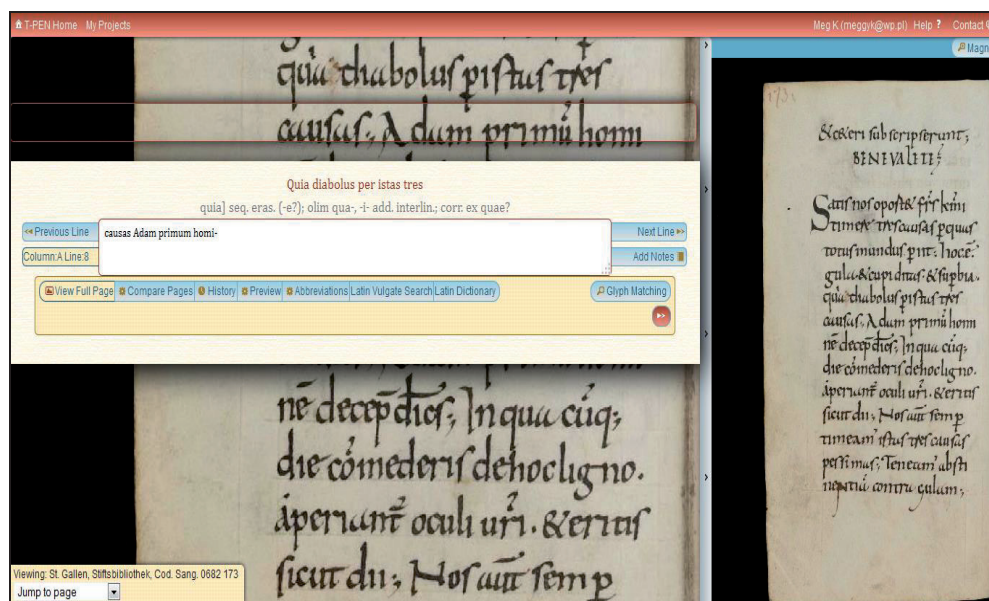 T-PEN Home My Projects
Meg K (meggyk@wp.pl) Help ? Contact
Magn
quia diabolus p̱istas tres
causas; Adam primū homi
Quia diabolus per istas tres
quia] seq. eras. (-e?); olim qua-, -i- add. interlin.; corr. ex quae?
Previous Line
causas Adam primum homi-
Next Line
Column:A Line:8
Add Notes
View Full Page Compare Pages History Preview Abbreviations Latin Vulgate Search Latin Dictionary Glyph Matching
nē decep dices; In qua cūq;
die comederis dehocligno.
aperiant̄ oculi ur̄i. & eritis
sicut dii; Nos aūt semp̱
Viewing: St. Gallen, Stiftsbibliothek, Cod. Sang. 0682 173
Jump to page
173.
& ceteri subscripserunt;
BENEVALETE;
Satis nos oport& fr̄s km̄i
timere tres causas p̱quas
totus mundus p̱it. hoc ē.
gula & cupiditas & sup̱bia.
quia diabolus p̱istas tres
causas; Adam primū homi
nē decep dices; In qua cūq;
die comederis dehocligno.
aperiant̄ oculi ur̄i. & eritis
sicut dii; Nos aūt semp̱
timeam̄ istas tres causas
pessimas; Teneam̄ absti
nentiā contra gulam;